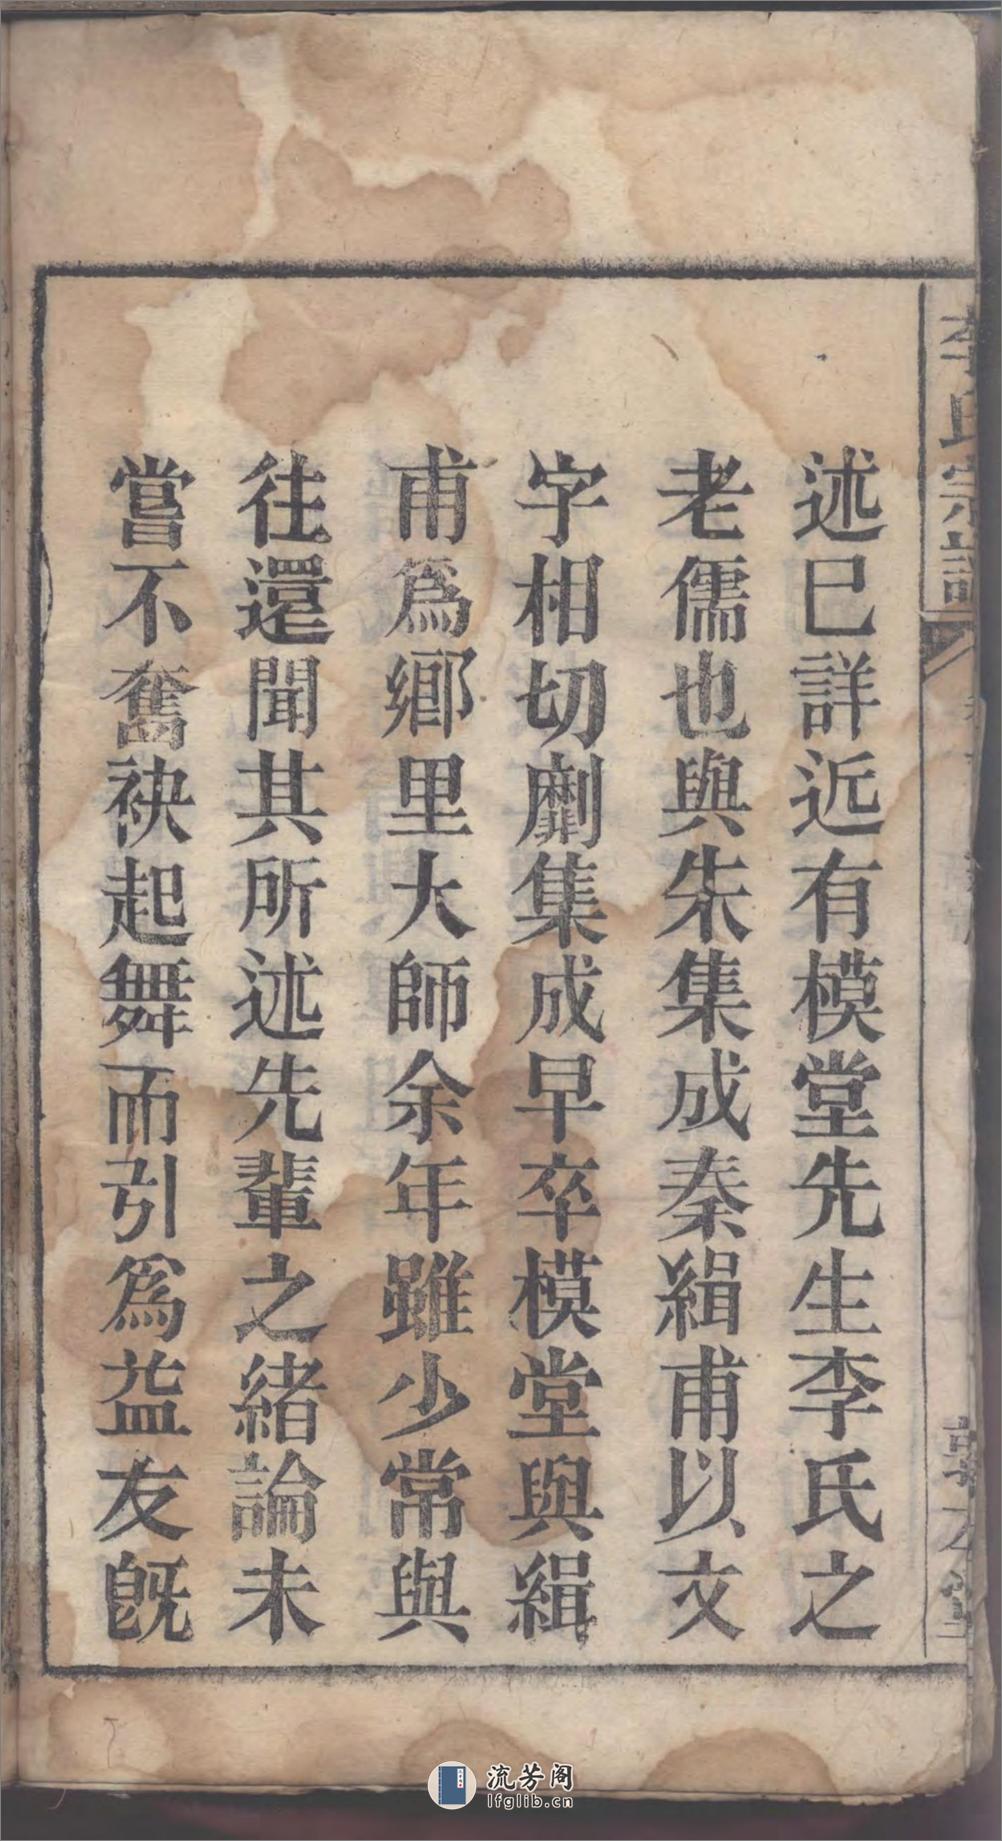 述已詳近有模堂先生李氏之
老儒也與朱集成秦緝甫以文
字相切劘集成早卒模堂與緝
甫為鄉里大師余年雖少常與
往還聞其所述先輩之緒論未
嘗不奮袂起舞而引為益友既
李氏宗譜
流芳阁
lfglib.cn